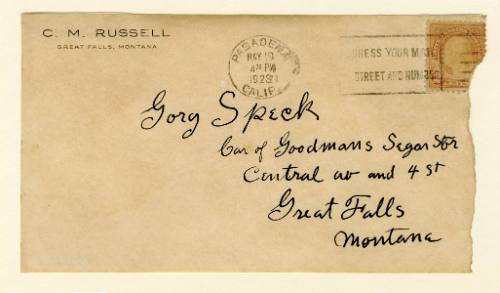 C. M. RUSSELL
GREAT FALLS, MONTANA
PASADENA
MAY 19
4 PM
CALIF.
DRESS YOUR MAIL
STREET AND NUMBER
Gorg Speck
Car of Goodmans Segar Stor
Central av and 4 st
Great Falls
Montana